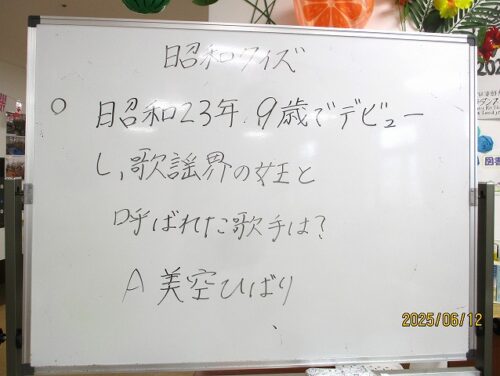 昭和クイズ
○ 昭和23年、9歳でデビュー
し、歌謡界の女王と
呼ばれた歌手は?
A 美空ひばり
2025/06/12